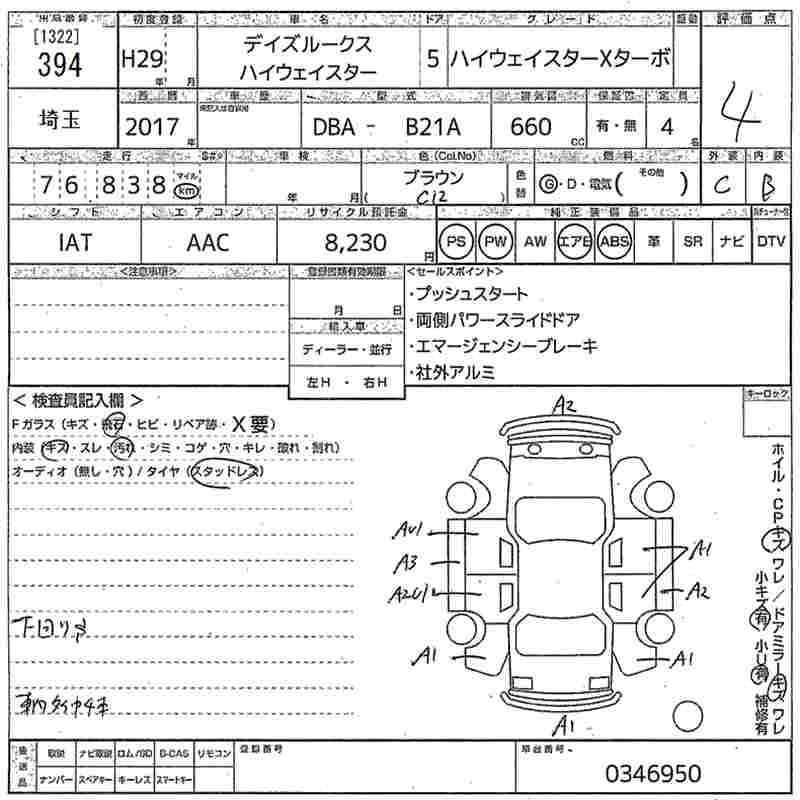 出品番号 初度登録 車名 ドア グレード 駆動 評価点
[1322]
394 H29年 月 デイズルークス ハイウェイスター 5 ハイウェイスターXターボ 4
西暦 車歴 型式 排気量 保証書 定員
埼玉 2017年 DBA - B21A 660cc 有・無 4名
走行 車検 色(Col.No) 燃料 外装 内装
76,838 マイル km 年 月 ブラウン (C12) 色替 G・D・電気( その他 ) C B
シフト エアコン リサイクル預託金 純正装備品
IAT AAC 8,230円 PS PW AW エアB ABS 革 SR ナビ DTV
<注意事項> 登録書類有効期限 <セールスポイント>
月 日
・プッシュスタート
輸入車
・両側パワースライドドア
ディーラー・並行
・エマージェンシーブレーキ
左H・右H
・社外アルミ
< 検査員記入欄 >
Fガラス(キズ・飛石・ヒビ・リペア跡・X要)
内装(キズ・スレ・汚れ・シミ・コゲ・穴・キレ・破れ・割れ)
オーディオ(無し・穴)/タイヤ(スタッドレス)
下回りサ
キーロック
ホイル・CPキズワレ/ドアミラーキズワレ
小キズ有 小U有 補修有
A2
AU1
A3
A2U1
A1
A1
A2
A1
A1
後送品 取説 ナビ取説 ロム/SD B-CAS リモコン 登録番号 車台番号
ナンバー スペアキー キーレス スマートキー 0346950